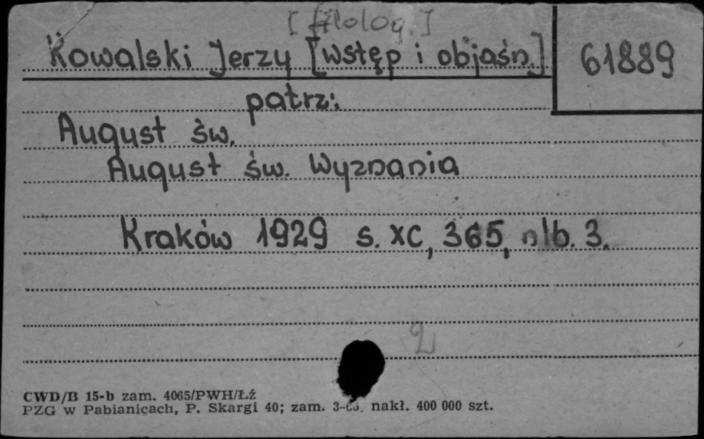 [filolog.]
Kowalski Jerzy [wstęp i objaśn.]
61889
patrz:
August św.
August św. Wyznania
Kraków 1929 s. XC, 365, nlb. 3.
2
CWD/B 15-b zam. 4065/PWH/Łź
PZG w Pabianicach, P. Skargi 40; zam. nakł. 400 000 szt.